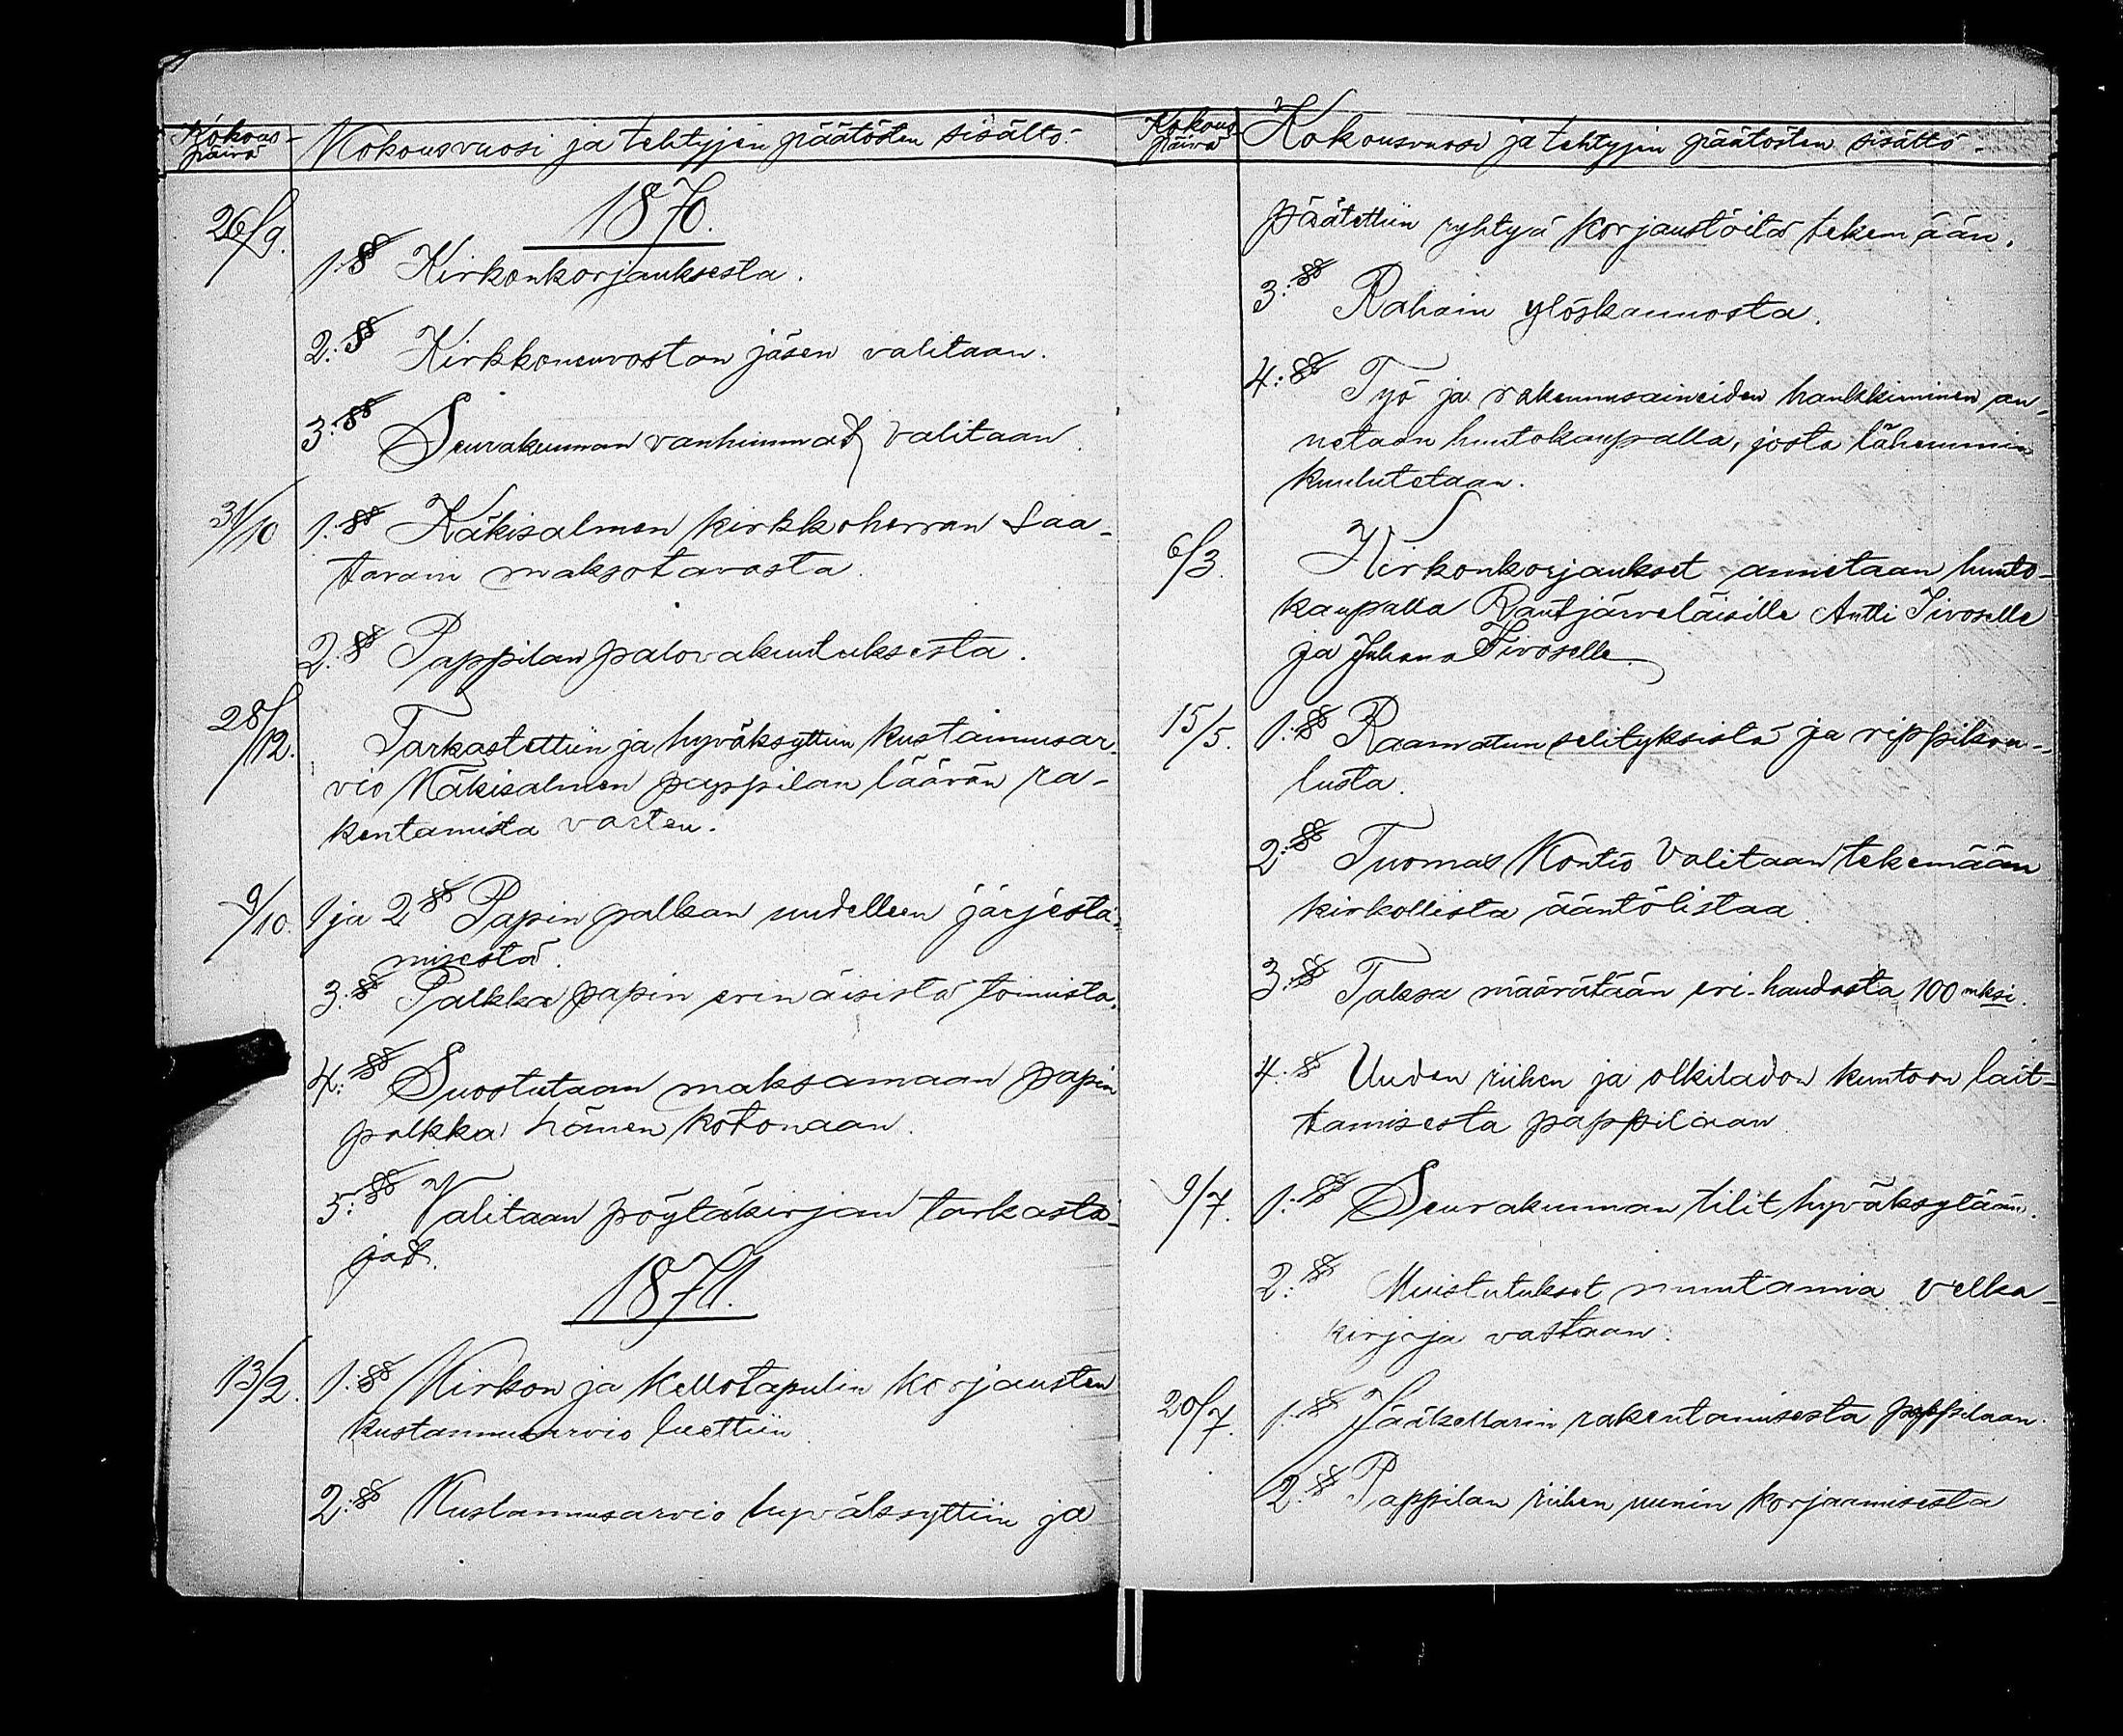 Kokous-
päivä
Kokousvuosi ja tehtyjen päätösten sisältö.
1870.
26/9.
1.§§ Kirkonkorjauksesta.
2:§§ Kirkkoneuvoston jäsen valitaan.
3:§§ Seurakunnan vanhimmat valitaan.
31/10
1:§§ Käkisalmen kirkkoherran saa-
tavain maksotavasta.
2:§§ Pappilan palovakuutuksesta.
28/12.
Tarkastettiin ja hyväksyttiin kustannusar-
vio Käkisalmen pappilan läävän ra-
kentamista varten.
9/10.
1 ja 2 §§ Papin palkan uudelleen järjestä-
misestä.
3:§§ Palkka papin erinäisistä toimista.
4:§§ Suostutaan maksamaan papin
palkka hänen kotonaan.
5:§§ Valitaan pöytäkirjan tarkasta-
jat.
1871.
13/2.
1:§§ Kirkon ja kellotapulin korjausten
kustannusarvio luettiin
2:§§ Kustannusarvio hyväksyttiin ja
Kokous-
päivä
Kokousvuosi ja tehtyjen päätösten sisältö.
päätettiin ryhtyä korjaustöitä tekemään.
3:§§ Rahain ylöskannosta.
4:§§ Työ ja rakennusaineiden hankkiminen an-
netaan huutokaupalla, josta lähemmin
kuulutetaan.
6/3.
Kirkonkorjaukset annetaan huuto-
kaupalla Rautjärveläisille Antti Tivoselle
ja Juhana Tivoselle.
15/5.
1:§§ Raamatun selityksistä ja rippikou-
lusta.
2:§§ Tuomas Kontio valitaan tekemään
kirkollista ääntölistaa.
3:§§ Taksa määrätään eri-haudasta 100 mksi.
4:§ Uuden riihen ja olkiladon kuntoon lait-
tamisesta pappilaan.
9/7.
1:§§ Seurakunnan tilit hyväksytään.
2:§§ Muistutukset muutamia velka-
kirjoja vastaan.
20/7.
1:§§ Jääkellarin rakentamisesta pappilaan.
2:§§ Pappilan riihen uunin korjaamisesta